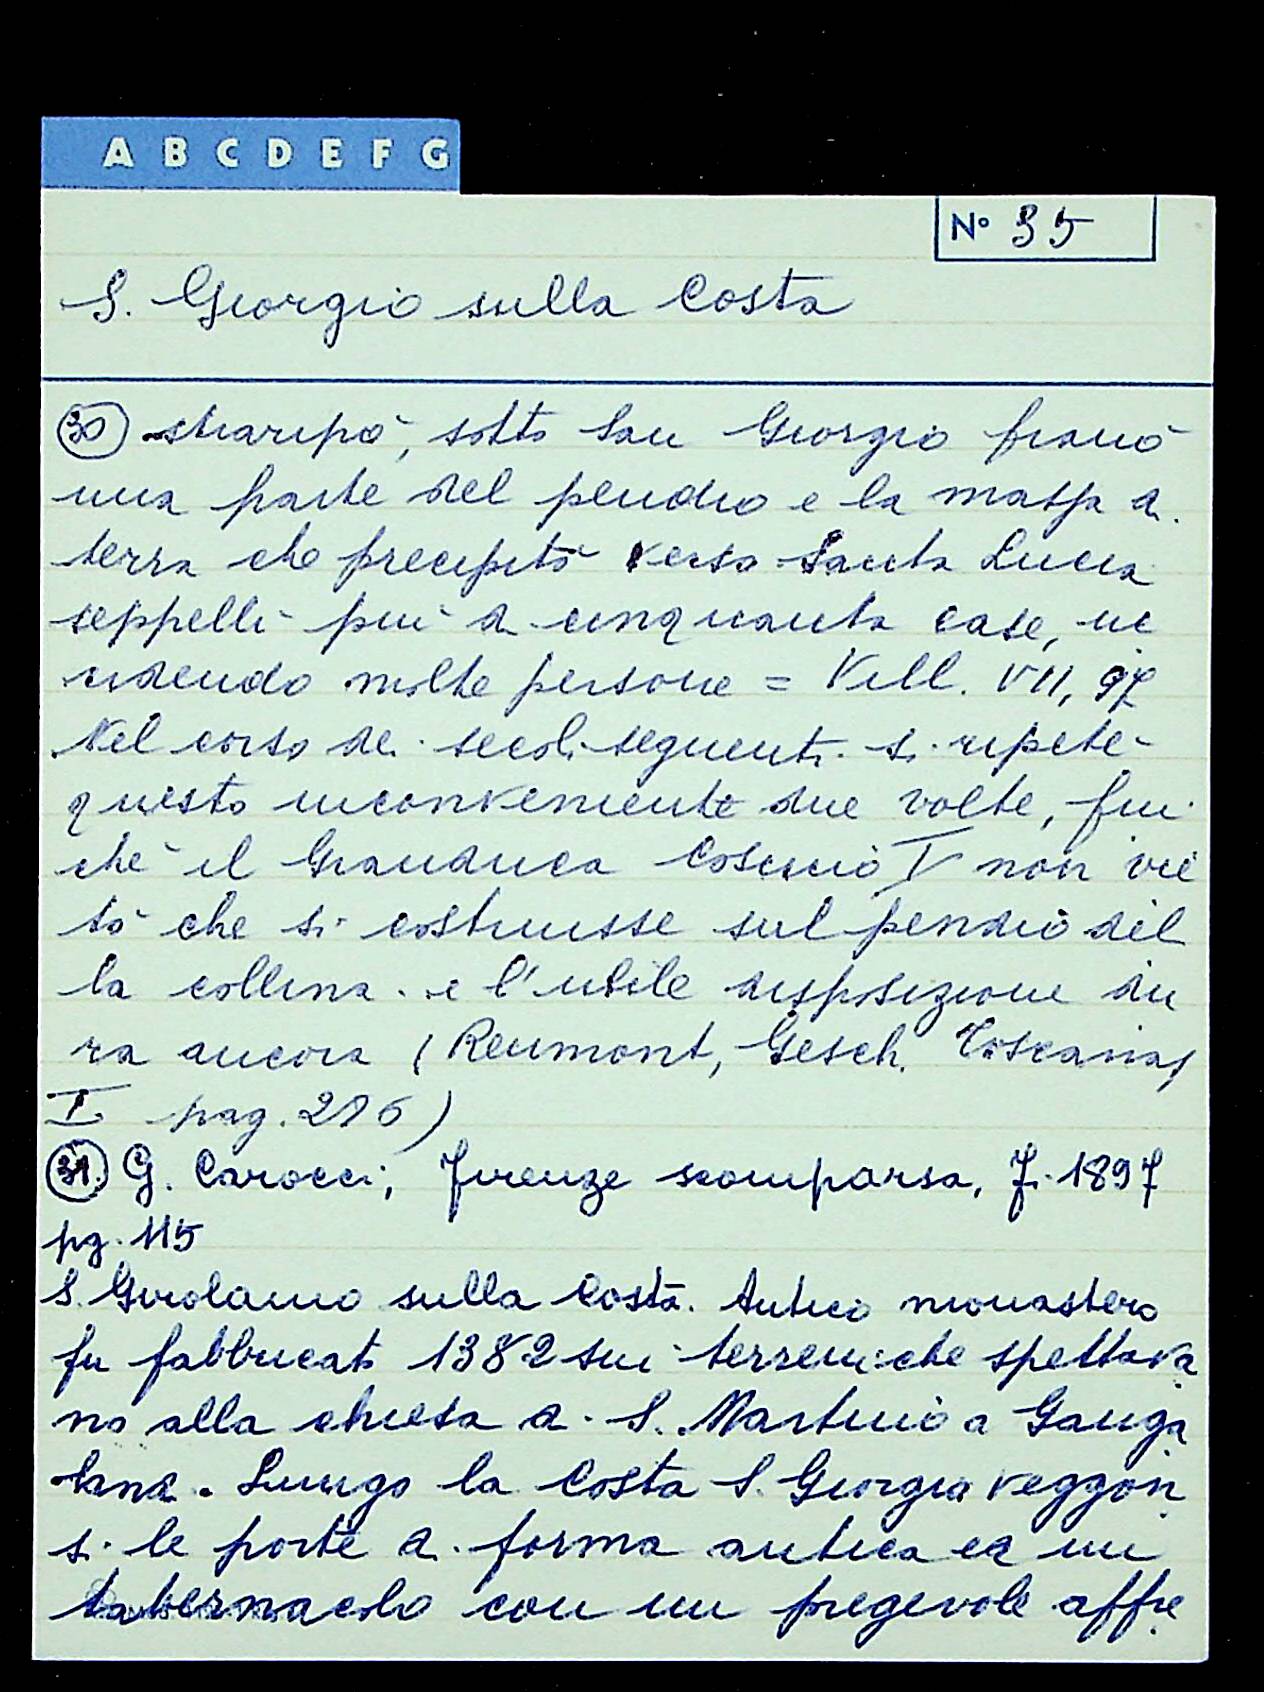 A B C D E F G
Nº 35
S. Giorgio sulla Costa
30 straripò, sotto San Giorgio franò
una parte del pendio e la massa di
terra che precipitò verso Santa Lucia
seppellì più di cinquanta case, uc
cidendo molte persone = Vill. VII, 97
Nel corso dei secoli seguenti si ripetè
questo inconveniente due volte, fin
chè il Granduca Cosimo I non vie
tò che si costruisse sul pendio del
la collina. e l'utile disposizione du
ra ancora (Reumont, Gesch. Toscanas
I pag. 216)
31. G. Carocci, Firenze scomparsa, F. 1897
pg. 115
S. Girolamo sulla Costa. Antico monastero
fu fabbricato 1382 sui terreni che spettava
no alla chiesa di S. Martino a Ganga
landi. Lungo la Costa S. Giorgio veggon
si le porte di forma antica ed un
tabernacolo con un pregevole affre